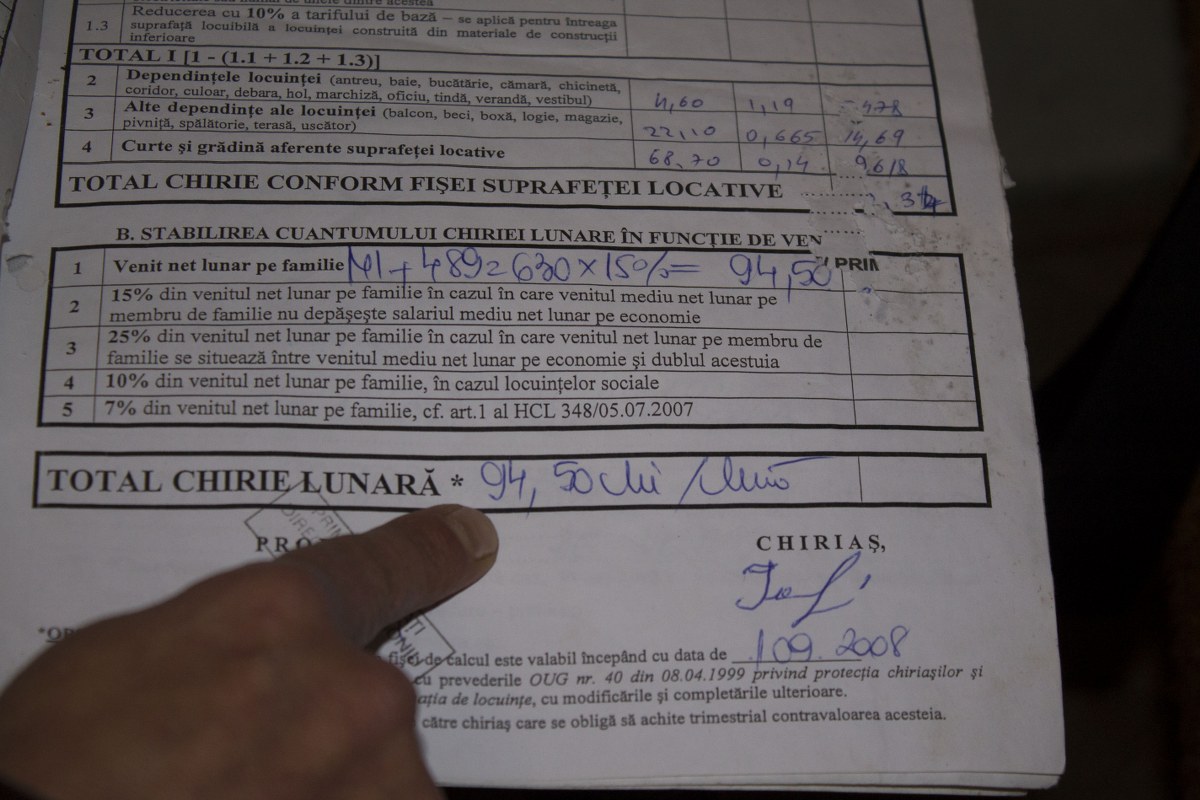 1.3 Reducerea cu 10% a tarifului de bază – se aplică pentru întreaga
suprafaţă locuibilă a locuinţei construită din materiale de construcţii
inferioare
TOTAL I [1 - (1.1 + 1.2 + 1.3)]
2 Dependinţele locuinţei (antreu, baie, bucătărie, cămară, chicinetă,
coridor, culoar, debara, hol, marchiză, oficiu, tindă, verandă, vestibul) 4,60 1,19
3 Alte dependinţe ale locuinţei (balcon, beci, boxă, logie, magazie,
pivniţă, spălătorie, terasă, uscător) 22,10 0,665 14,69
4 Curte şi grădină aferente suprafeţei locative 68,70 0,14 9,618
TOTAL CHIRIE CONFORM FIŞEI SUPRAFEŢEI LOCATIVE
B. STABILIREA CUANTUMULUI CHIRIEI LUNARE ÎN FUNCŢIE DE VEN
PRIM
1 Venit net lunar pe familie 141 + 489 = 630 x 15% = 94,50
2 15% din venitul net lunar pe familie în cazul în care venitul mediu net lunar pe
membru de familie nu depăşeşte salariul mediu net lunar pe economie
3 25% din venitul net lunar pe familie în cazul în care venitul net lunar pe membru de
familie se situează între venitul mediu net lunar pe economie şi dublul acestuia
4 10% din venitul net lunar pe familie, în cazul locuinţelor sociale
5 7% din venitul net lunar pe familie, cf. art.1 al HCL 348/05.07.2007
TOTAL CHIRIE LUNARĂ * 94,50 lei / lună
PRO
CHIRIAŞ,
fişei de calcul este valabil începând cu data de 1 09. 2008
cu prevederile OUG nr. 40 din 08.04.1999 privind protecţia chiriaşilor şi
aţia de locuinţe, cu modificările şi completările ulterioare.
către chiriaş care se obligă să achite trimestrial contravaloarea acesteia.